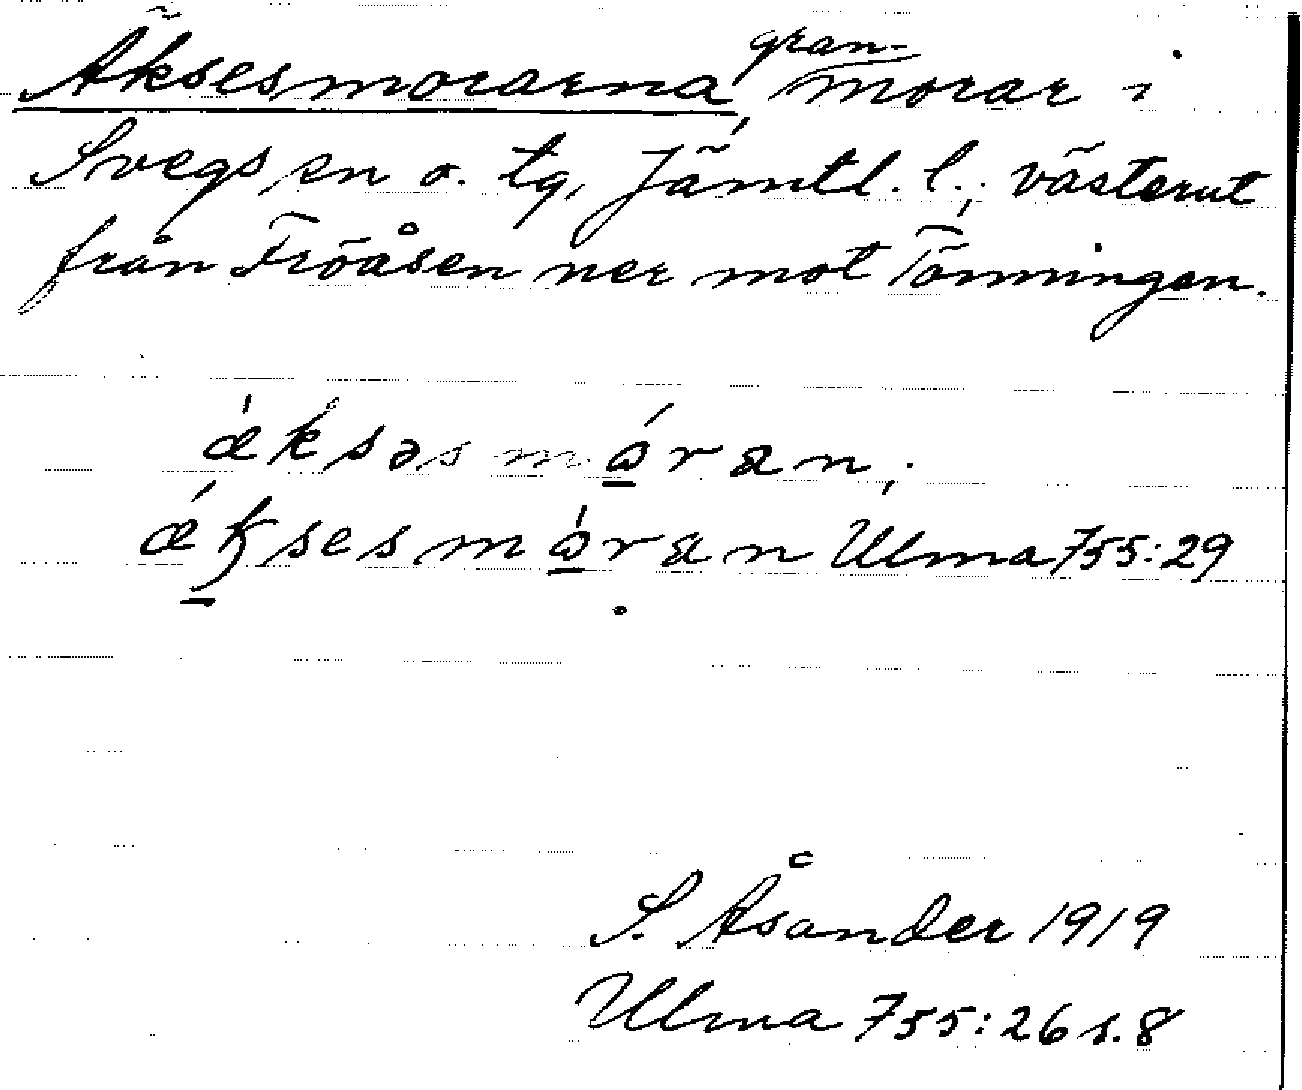 Äksesmorarna, gran-morar i
Svegs sn o. tg, Jämtl. l., västerut
från Fröåsen ner mot Tönningen.
ǽksəsmɷ́ran,
ǽksesmɷ́ran Ulma 755:29
S. Åsander 1919
Ulma 755:26 s. 8